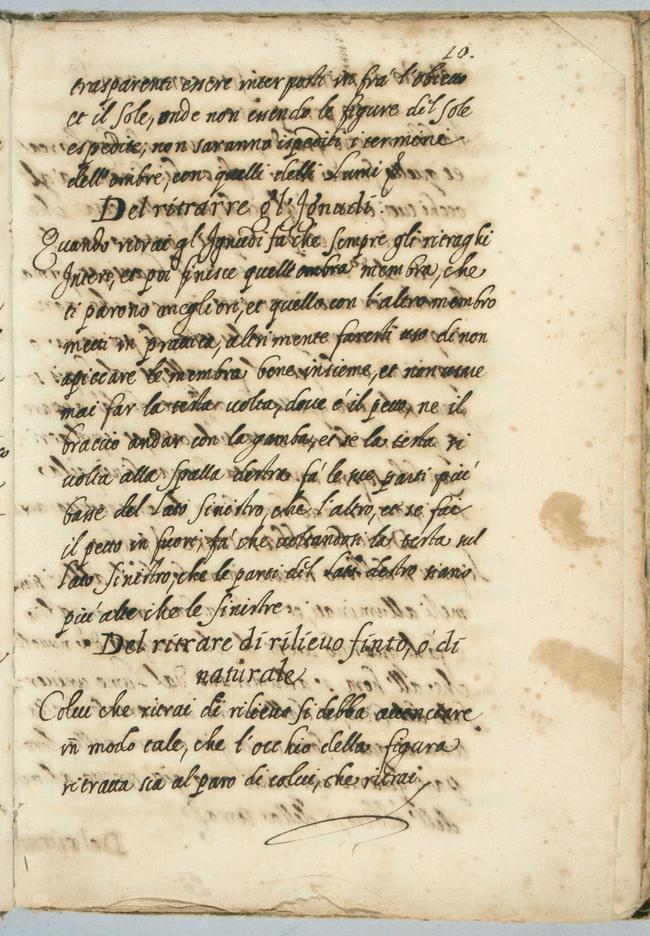 10.
trasparenti essere interposti in fra l'obieto
et il sole, onde non essendo le figure del sole
espedite, non saranno ispediti i termine
dell'ombre, con quelli delli Lumi
Del ritrarre gl'Ignudi.
Quando ritrai gl'Ignudi fa che sempre gli ritraghi
Interi, et poi finisce quell membra, che
ti parono megliori, et quello con l'altro membro
metti in pratica, altrimente faresti uso di non
apiccare le membra bene insieme, et non
mai far la testa uolta, doue é il peto, ne il
braccio andar con la gamba, et se la testa si
uolta alla spalla destra fa le sue parti piú
basse del Lato sinistro, che l'altro, et se fai
il peto in fuori, fa che uoltandosi la testa sul
lato sinistro, che le parti del lato destro siano
piú alte che le sinistre
Del ritrare di rilieuo finto, o di
naturale
Colui che ritrai di rilieuo si debba
in modo tale, che l'occhio della figura
ritratta sia al paro di colui, che ritrai